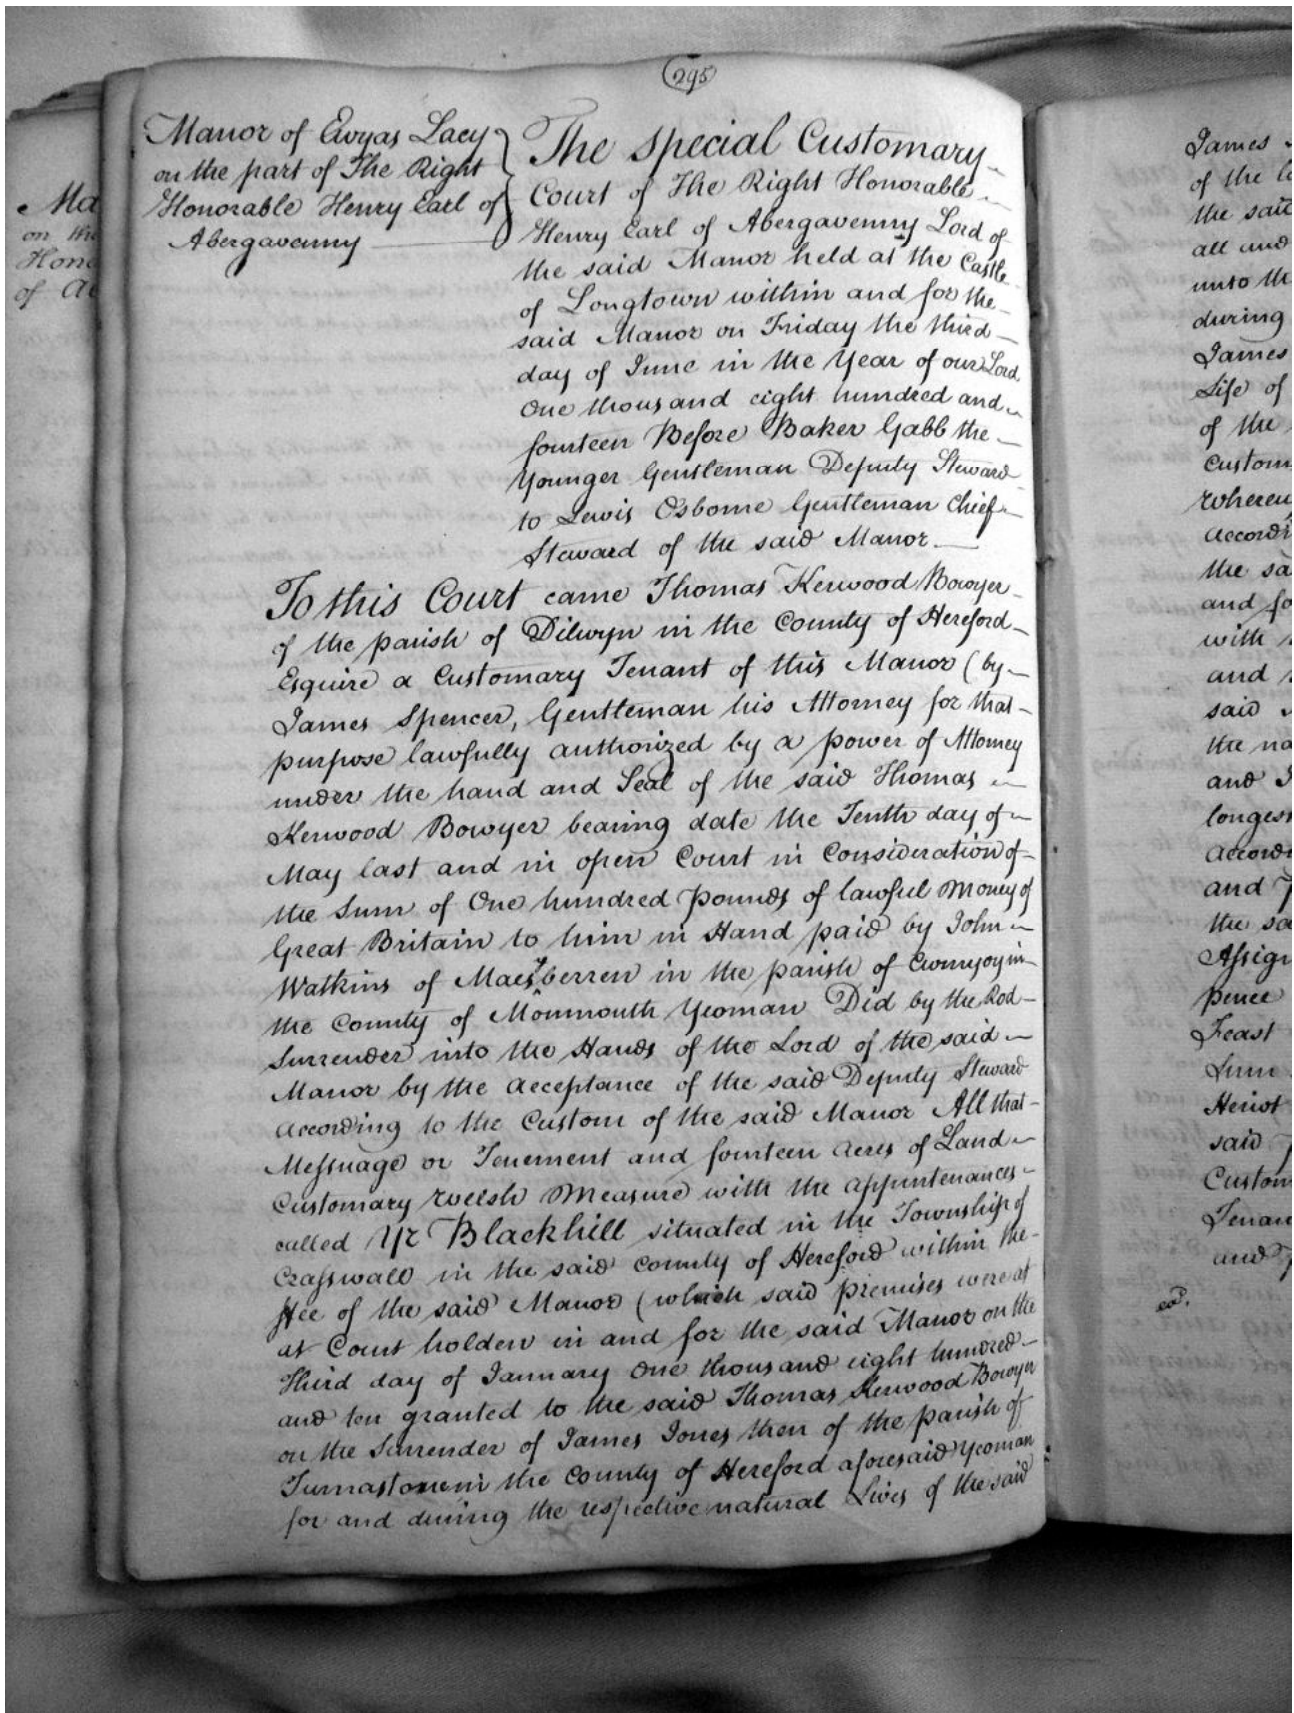 295
Manor of Ewyas Lacy
on the part of The Right
Honorable Henry Earl of
Abergavenny
The Special Customary
Court of The Right Honorable
Henry Earl of Abergavenny Lord of
the said Manor held at the Castle
of Longtown within and for the
said Manor on Friday the third
day of June in the Year of our Lord
One thousand eight hundred and
fourteen Before Baker Gabb the
Younger Gentleman Deputy Steward
to Lewis Osborne Gentleman Chief
Steward of the said Manor
To this Court came Thomas Kerwood Bowyer
of the parish of Dilwyn in the County of Hereford
Esquire a Customary Tenant of this Manor (by
James Spencer, Gentleman his Attorney for that
purpose lawfully authorized by a power of Attorney
under the hand and Seal of the said Thomas
Kerwood Bowyer bearing date the Tenth day of
May last and in open Court in Consideration of
the Sum of One hundred pounds of lawful Money of
Great Britain to him in Hand paid by John
Watkins of Maesyberren in the parish of Cwmyoy in
the County of Monmouth Yeoman Did by the Rod
Surrender into the Hands of the Lord of the said
Manor by the acceptance of the said Deputy Steward
according to the Custom of the said Manor All that
Messuage or Tenement and fourteen acres of Land
Customary Welsh Measure with the appurtenances
called Yr Blackhill situated in the Township of
Crasswall in the said County of Hereford within the
ffee of the said Manor (which said premises were at
at Court holden in and for the said Manor on the
Third day of January One thousand eight hundred
and ten granted to the said Thomas Kerwood Bowyer
on the Surrender of James Jones then of the parish of
Turnastone in the County of Hereford aforesaid Yeoman
for and during the respective natural Lives of the said
Ma
on the
Hono
of A
James
of the
the said
all and
unto the
during
James
Life of
of the
Custom
whereu
accordi
the sa
and fo
with
and
said
the na
and
longes
accord
and
the sa
Assign
pence
Feast
Sum
Heriot
said
Custom
Tenan
and